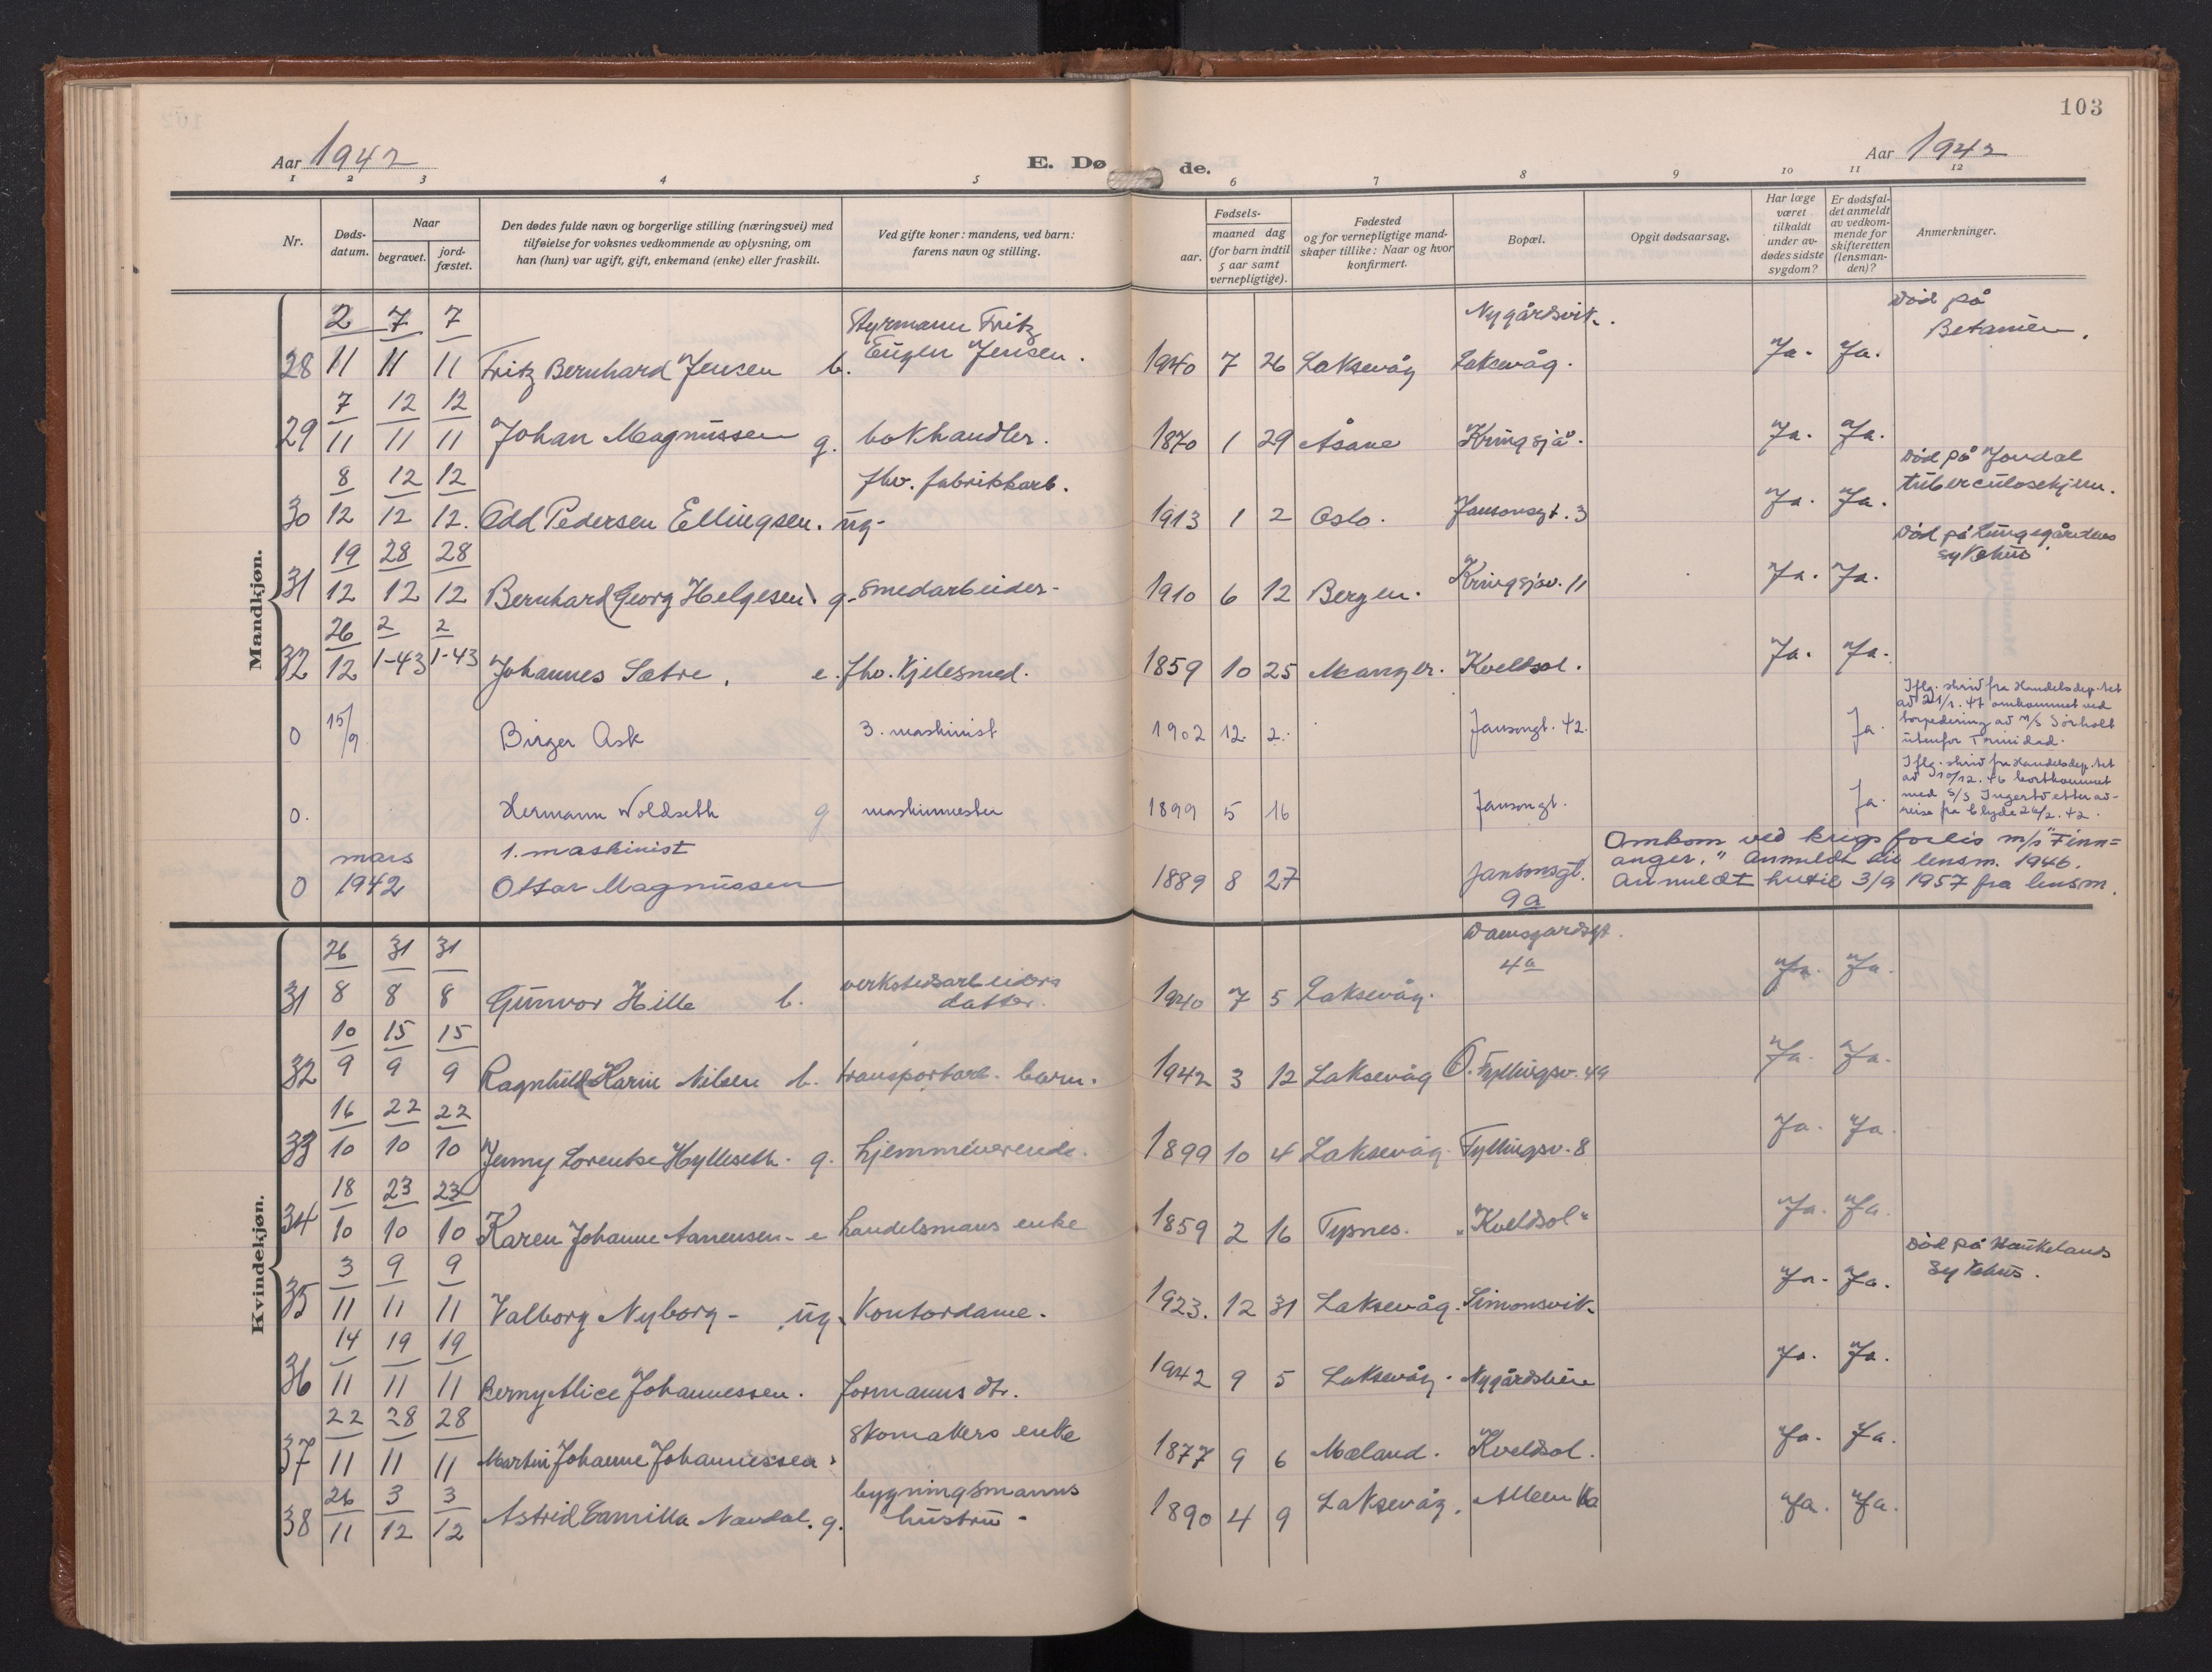 103
Aar 1942
E. Døde.
Aar 1942
1 2 3 4 5 6 7 8 9 10 11 12
Nr.
Døds-
datum.
Naar
begravet.
jord-
fæstet.
Den dødes fulde navn og borgerlige stilling (næringsvei) med
tilføielse for voksnes vedkommende av oplysning, om
han (hun) var ugift, gift, enkemand (enke) eller fraskilt.
Ved gifte koner: mandens, ved barn:
farens navn og stilling.
Fødsels-
aar. maaned dag
(for barn indtil
5 aar samt
vernepligtige).
Fødested
og for vernepligtige mand-
skaper tillike: Naar og hvor
konfirmert.
Bopæl.
Opgit dødsaarsag.
Har læge
været
tilkaldt
under av-
dødes sidste
sygdom?
Er dødsfal-
det anmeldt
av vedkom-
mende for
skifteretten
(lensman-
den)?
Anmerkninger.
Mandkjøn.
2 7 7 Styrmann Fritz Nygårdsvik. Død på
28 11 11 11 Fritz Bernhard Jensen b. Eugen Jensen. 1940 7 26 Laksevåg Laksevåg. Ja. Ja. Betanien.
7 12 12
29 11 11 11 Johan Magnussen g. bokhandler. 1870 1 29 Åsane Kringsjå. Ja. Ja.
8 12 12 fhv. fabrikkarb. Død på Jondal
30 12 12 12. Odd Pedersen Ellingsen. ug- 1913 1 2 Oslo. Jansonsgt. 3 Ja. Ja. tuberculosehjem.
19 28 28 Død på Lungegårdens
31 12 12 12 Bernhard Georg Helgesen g- smedarbeider- 1910 6 12 Bergen. Kringsjøv. 11 Ja. Ja. sykehus.
26 2 2
32 12 1-43 1-43 Johannes Sætre, e. fhv. kjelesmed. 1859 10 25 Manger. Kveldsol. Ja. Ja.
0 15/9 Birger Ask 3. maskinist 1902 12. 2. Jansongt. 42. Ja.
Iflg. skriv fra Handelsdep.tet
av 21/1. 47 omkommet ved
torpedering av M/S Sörholt
utenfor Trinidad.
0. Hermann Woldseth g maskinmester 1899 5 16 Jansongt. Ja.
Iflg. skriv fra Handelsdep.tet
av 10/12. 46 bortkommet
med S/S Ingerto etter av-
reise fra Clyde 26/2. 42.
mars 1. maskinist
0 1942 Ottar Magnussen 1889 8 27 Jansonsgt. 9a
Omkom ved krigsforlis m/s "Finn=
anger." Anmeldt til lensm. 1946.
Anmeldt hertil 3/9 1957 fra lensm.
Kvindekjøn.
26 31 31 Damsgårdsgt. 4a
31 8 8 8 Gunvor Hille b. verkstedsarbeiders datter. 1940 7 5 Laksevåg. Ja. Ja.
10 15 15
32 9 9 9 Ragnhild Karin Nilsen b. transportarb. barn. 1942 3 12 Laksevåg O. Fyllingsv. 49 Ja. Ja.
16 22 22
33 10 10 10 Jenny Lorentse Hylleseth. g. hjemmeverende. 1899 10 4 Laksevåg. Fyllingsv. 8 Ja. Ja.
18 23 23
34 10 10 10 Karen Johanne Aanensen- e handelsmans enke 1859 2 16 Tysnes. "Kveldsol" Ja. Ja.
3 9 9 Død på Haukelands
35 11 11 11 Valborg Nyborg- ug. Kontordame. 1923. 12 31 Laksevåg. Simonsvik. Ja. Ja. Sykehus.
14 19 19
36 11 11 11 Berny Alice Johannessen. formanns dtr. 1942 9 5 Laksevåg. Nygårdslien Ja. Ja.
22 28 28 skomakers enke
37 11 11 11 Martin Johanne Johannessen. 1877 9 6 Mæland. Kveldsol. Ja. Ja.
26 3 3 bygningsmanns
38 11 12 12 Astrid Camilla Navdal. g. hustru- 1890 4 9 Laksevåg. Alleen Ja. Ja.